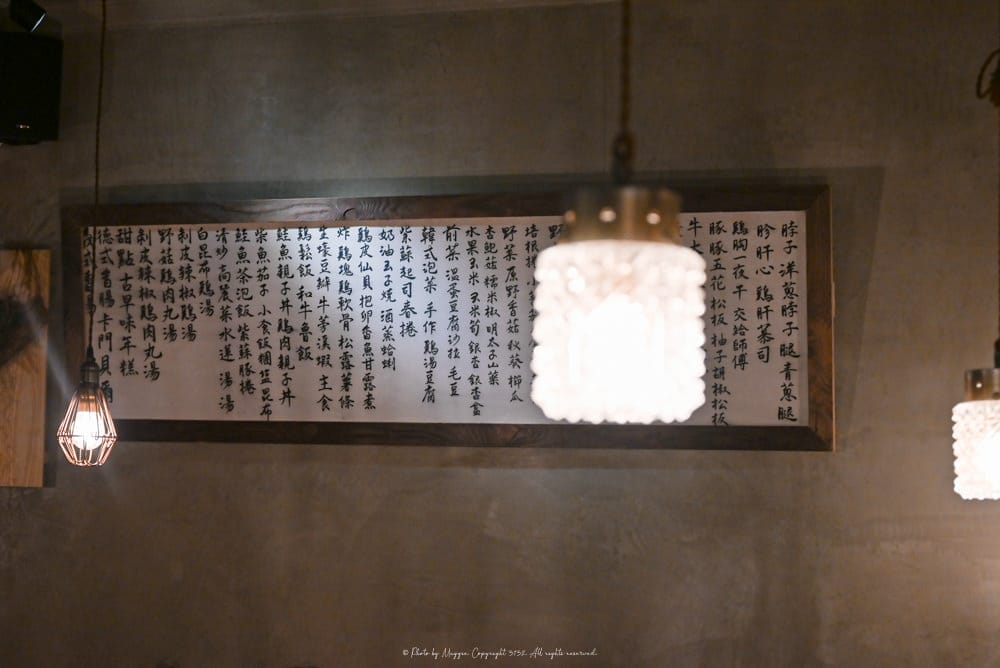 脖子 洋蔥脖子 腿 青蔥腿
胗肝心 雞肝慕司
鷄胸一夜干 交給師傅
豚豚五花 松板 柚子胡椒松板
牛
野
培根
野菜 原野香菇 秋葵 櫛瓜
杏鮑菇 糯米椒 明太子山藥
水果玉米 玉米筍 銀杏 銀杏盒
前菜 溫蛋豆腐沙拉 毛豆
韓式泡菜 手作鷄湯豆腐
紫蘇起司春捲
奶油玉子燒 酒蒸蛤蜊
鷄皮仙貝 明卵香魚甘露煮
炸鷄塊 鷄軟骨 松露薯條
生蠔豆瓣 牛蒡漢蝦 主食
鷄鬆飯 和牛魯飯
鮭魚親子丼 鷄肉親子丼
柴魚茄子 小食飯糰 昆布
鮭魚茶泡飯 紫蘇豚捲
清炒 尚農菜 水蓮 湯 湯
白昆布鷄湯
剝皮辣椒鷄湯
野菇鷄肉丸湯
剝皮辣椒鷄肉丸湯
甜點 古早味年糕
德式香腸 卡門貝爾
© Photo by Maggie. Copyright 3132. All rights reserved.